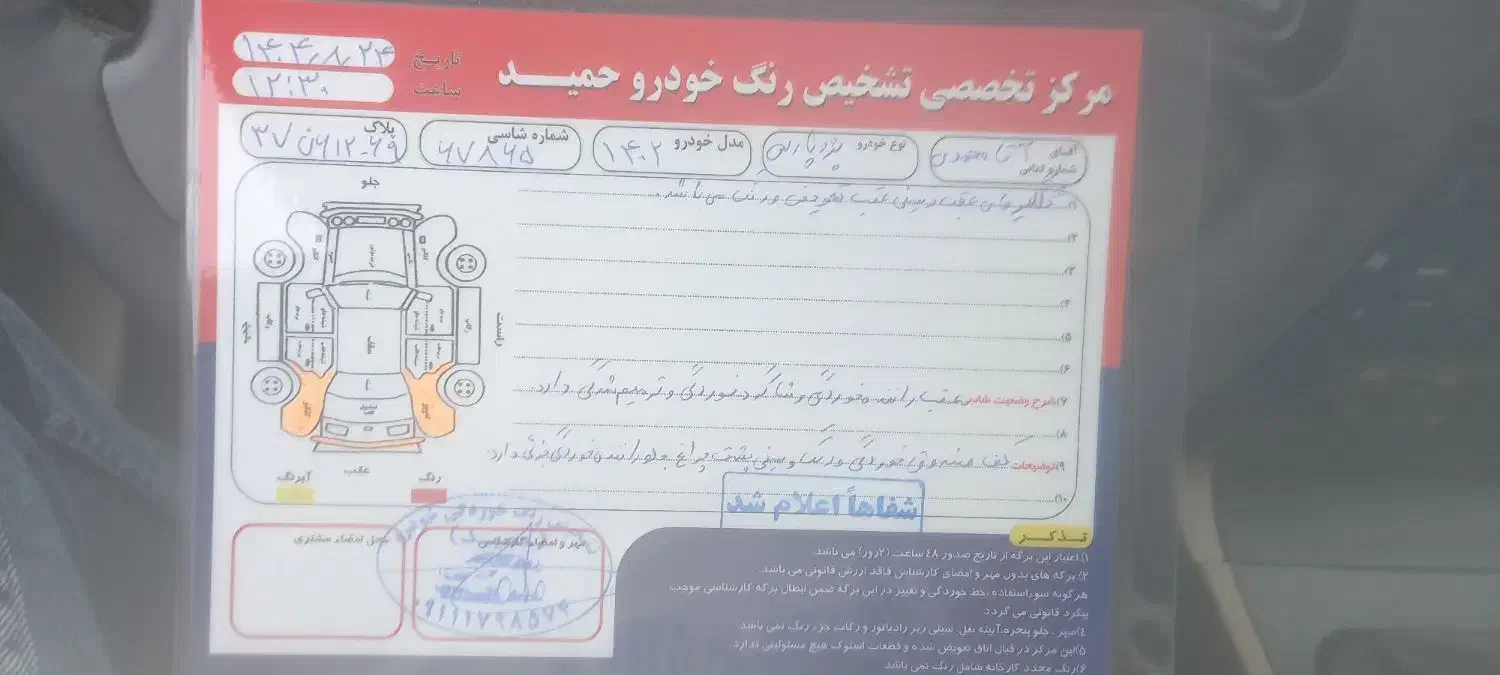 مرکز تخصصی تشخیص رنگ خودرو حمیـــد
تاریخ ۱۴۰۴/۸/۲۴
ساعت ۱۲:۳۰
آقای آقا محمدی
شماره تماس
نوع خودرو پژو پارس
مدل خودرو ۱۴۰۲
شماره شاسی ۶۷۸۶۵
پلاک ۳۷ ن ۶۱۲-۶۹
جلو
۱) گلگیرهای عقب و سینی عقب تعویض و رنگ می باشد.
۲)
۳)
۴)
۵)
۶)
۷)شرح وضعیت شاسی عقب راننده خوردگی و شاگرد خوردگی و ترمیم شدگی دارد.
۸)
۹)توضیحات کف صندوق خوردگی و رنگ و سینی پشت چراغ جلو راننده خوردگی جزئی دارد.
۱۰)
راست
سقف
رکاب
رکاب
گلگیر
گلگیر
عقب
رنگ
آبرنگ
شفاهاً اعلام شد
مهر و امضاء کارشناس
محل امضاء مشتری
۰۹۱۱۱۷۹۸۵۷۳
تـذکـر
۱) اعتبار این برگه از تاریخ صدور ۴۸ ساعت (۲روز) می باشد.
۲) برگه های بدون مهر و امضای کارشناس فاقد ارزش قانونی می باشد.
هرگونه سوءاستفاده ،خط خوردگی و تغییر در این برگه ضمن ابطال برگه کارشناسی موجب
پیگرد قانونی می گردد
۴)سپر ، جلو پنجره،آیینه بغل، سینی زیر رادیاتور و رکاب جزء رنگ نمی باشد.
۵)این مرکز در قبال اتاق تعویض شده و قطعات استوک هیچ مسئولیتی ندارد
۶)رنگ مجدد کارخانه شامل رنگ نمی باشد